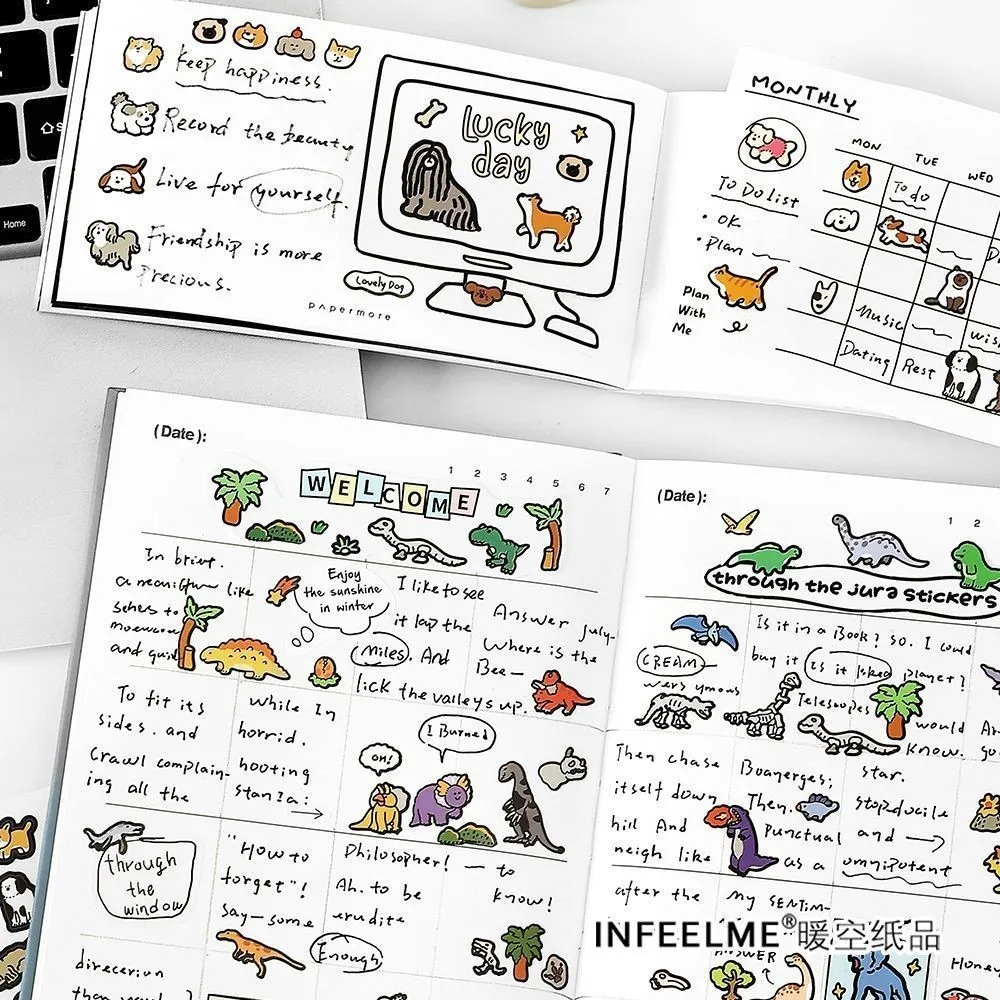 Home
Keep happiness.
Record the beauty
Live for yourself.
Friendship is more
Precious.
Lucky
day
Lovely Dog
PAPERMORE
MONTHLY
MON TUE WED
To Do list
To do
• OK
• Plan
Plan
With
Me
Music
Dating Rest
(Date):
1 2 3 4 5 6 7
WELCOME
In brief.
like
and
Enjoy
the sunshine
in winter
I like to see
it lap the
Miles. And
lick the valleys up.
Answer July-
Where is the
Bee—
To fit its
sides. and
Crawl complain-
ing all the
While In
horrid.
hooting
stanza:
oh!
I Burned
through
the
window
"How to
forget"!
say—some
Philosopher! — to
Ah. to be
erudite
Enough
know!
direcerion
(Date):
1 2
through the jura stickers
Is it in a Book? So, I could
buy it Is it liked planet?
CREAM—
Telescopes
would
know.
Then chase
itself down
hill And
neigh like
Boanerges;
Then.
punctual
as a
star.
stop docile
and
omnipotent
after the
my SENTIM-
ANSWER
Honey
INFEELME® 暖空纸品